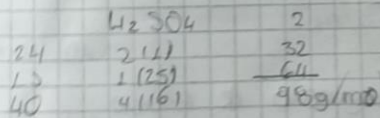 H2 SO4 2
24 2(1) 32
15 1(25) 64
40 4(16) 98g/mo